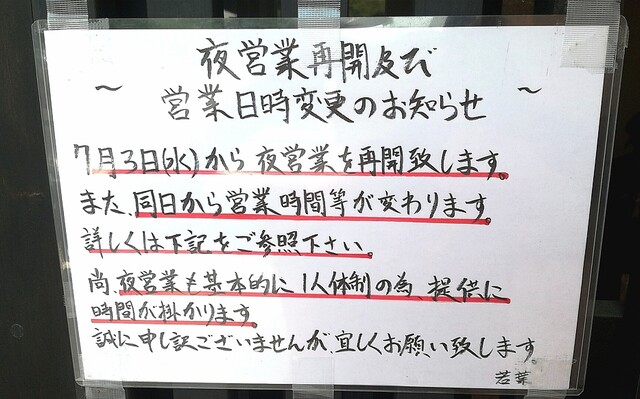 夜営業再開及び
~ 営業日時変更のお知らせ ~
7月3日(水)から夜営業を再開致します。
また、同日から営業時間等が変わります。
詳しくは下記をご参照下さい。
尚、夜営業も基本的に1人体制の為、提供に
時間が掛かります。
誠に申し訳ございませんが、宜しくお願い致します
若葉